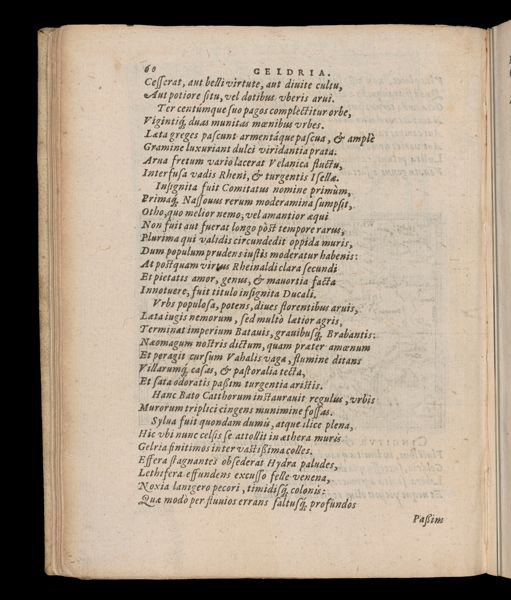 60
GELDRIA.
Cesserat, aut belli virtute, aut divite cultu,
Aut potiore situ, vel dotibus vberis arui.
Ter centúmque suo pagos complectitur orbe,
Vigintiq́; duas munitas mœnibus vrbes.
Læta greges pascunt armentáque pascua, & amplè
Gramine luxuriant dulci viridantia prata.
Arua fretum vario lacerat Velanica fluctu,
Interfusa vadis Rheni, & turgentis Isellæ.
Insignita fuit Comitatus nomine primùm,
Primaq́; Nassouus rerum moderamina sumpsit,
Otho, quo melior nemo, vel amantior æqui
Non fuit aut fuerat longo pòst tempore rarus,
Plurima qui validis circundedit oppida muris,
Dum populum prudens iustis moderatur habenis:
At postquam virtus Rheinaldi clara secundi
Et pietatis amor, genus, & mauortia facta
Innotuere, fuit titulo insignita Ducali.
Vrbs populosa, potens, diues florentibus aruis,
Læta iugis nemorum, sed multò lætior agris,
Terminat imperium Batauis, grauibusq́; Brabantis:
Næomagum nostris dictum, quam præter amœnum
Et peragit cursum Vahalis vaga, flumine ditans
Villarumq́; casas, & pastoralia tecta,
Et sata odoratis passim turgentia aristis.
Hanc Bato Catthorum instaurauit regulus, vrbis
Murorum triplici cingens munimine fossas.
Sylua fuit quondam dumis, atque ilice plena,
Hic vbi nunc celsis se attollit in æthera muris
Gelria finitimos inter vastissima colles.
Effera stagnantes obsederat Hydra paludes,
Lethifera effundens excusso felle venena,
Noxia lanigero pecori, timidisq́; colonis:
Quæ modò per fluuios errans saltusq́; profundos
Passim